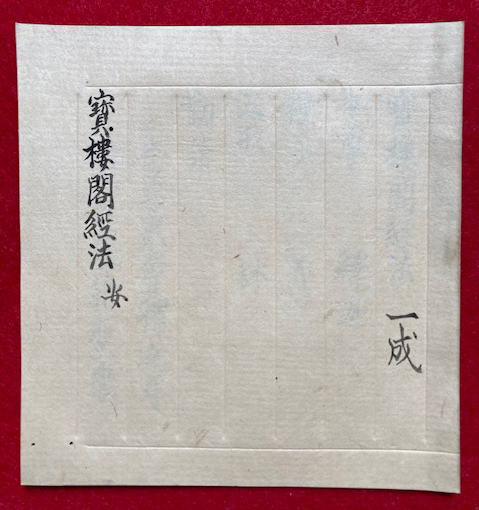 一成
寶樓閣經法 安